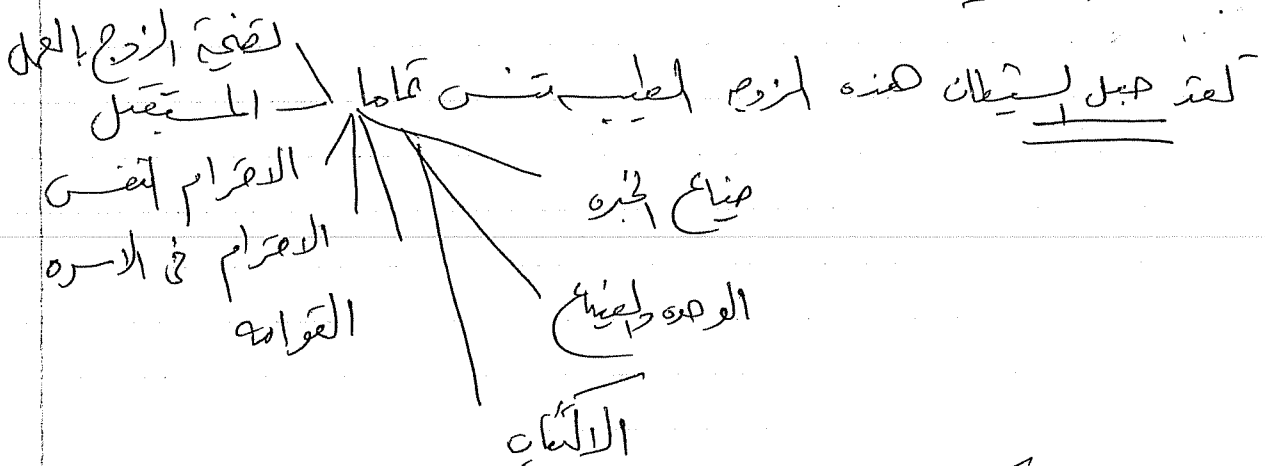 لقد حبل الشيطان هذه الزوجه الطيبه تنس تماما
تضحية الزوج بالعمل
المستقبل
الاحترام لنفس
الاحترام في الاسره
القوامه
ضياع الخبره
الوحده والضياع
الاكتئاب